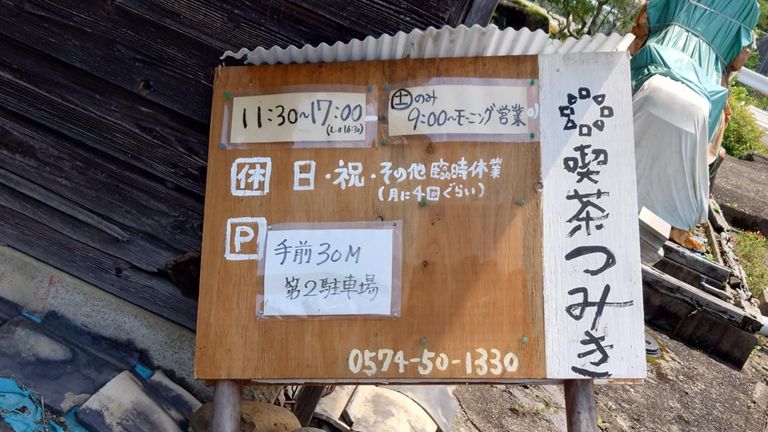 喫茶つみき
11:30〜17:00
(L.o 16:30)
土のみ
9:00〜モーニング営業
休 日・祝・その他臨時休業
(月に4回ぐらい)
P 手前30M
第2駐車場
0574-50-1330